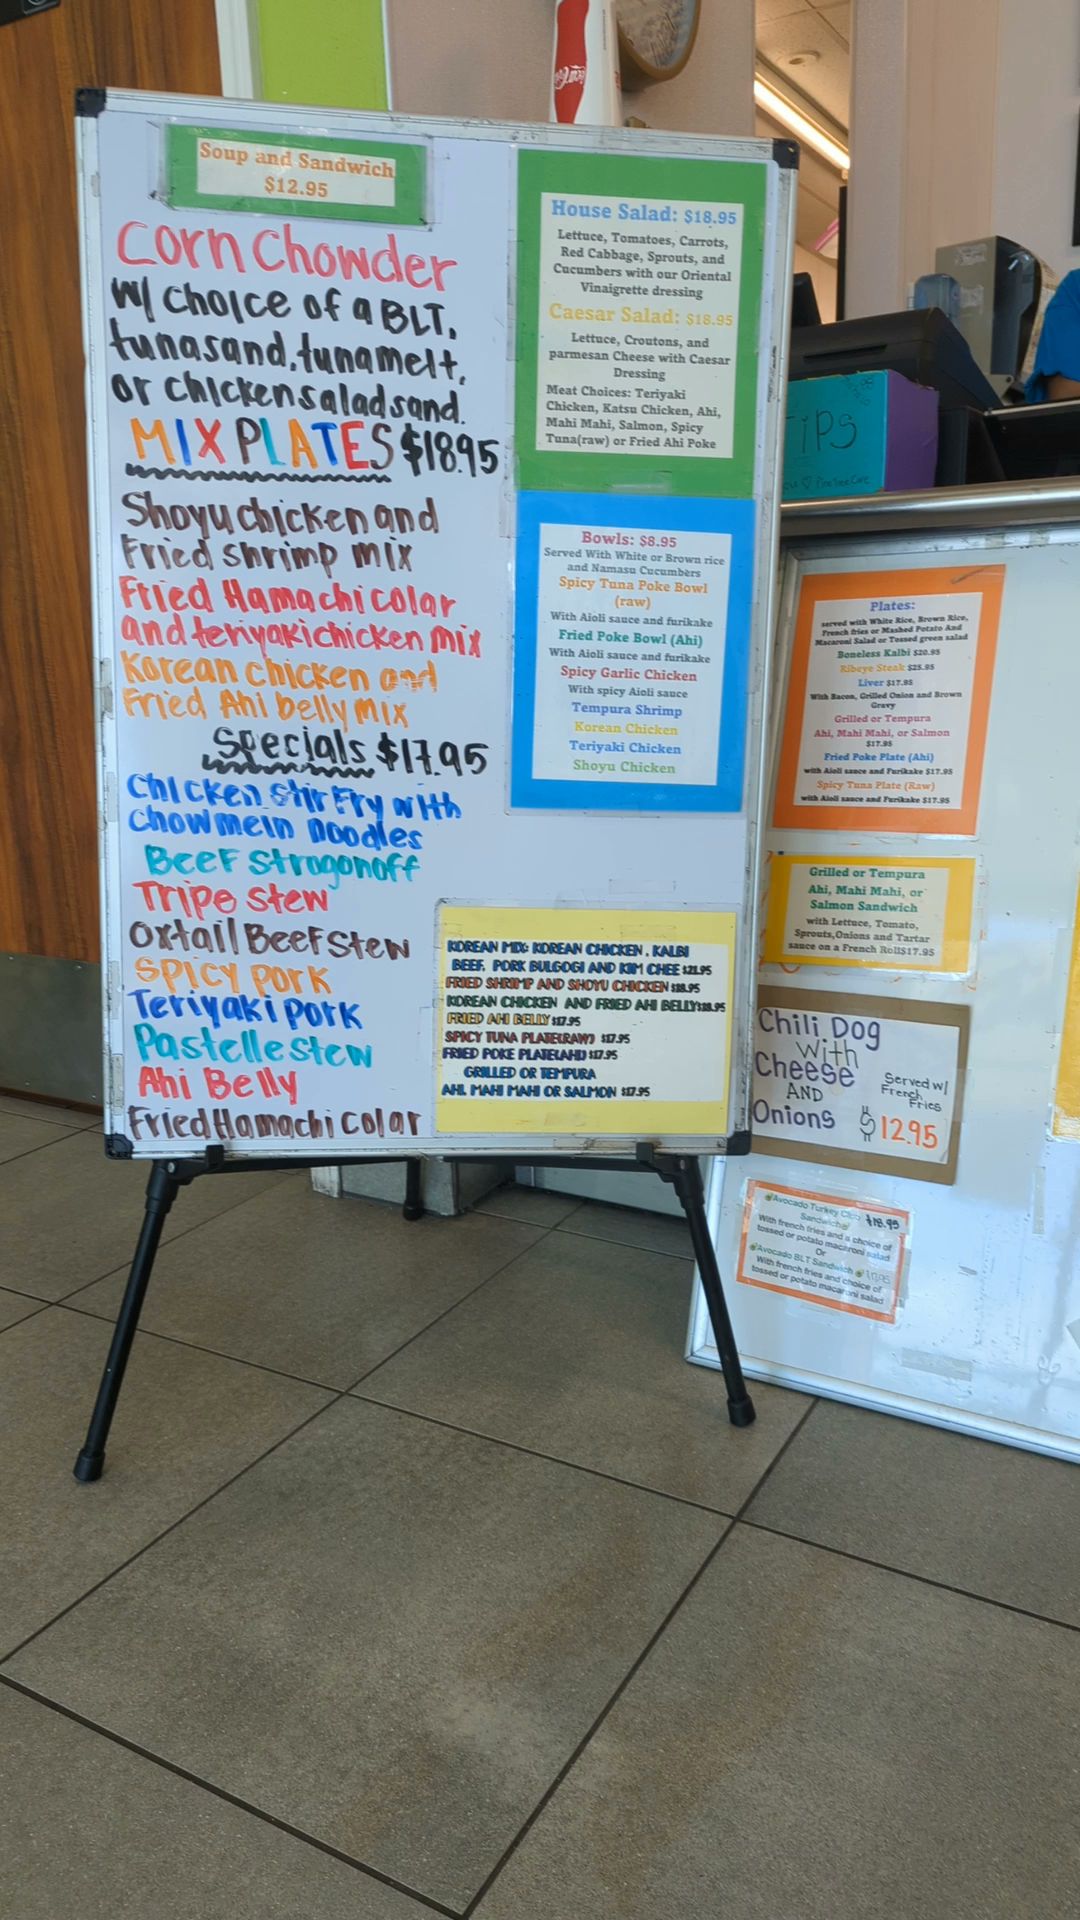 Soup and Sandwich
$12.95
Corn Chowder
w/ choice of a BLT,
tunasand, tunamelt,
or chickensaladsand.
MIX PLATES $18.95
Shoyu chicken and
Fried shrimp mix
Fried Hamachi colar
and teriyaki chicken mix
Korean chicken and
Fried Ahi belly mix
Specials $17.95
Chicken stir Fry with
chowmein noodles
Beef Strogonoff
Tripe stew
Oxtail Beef Stew
Spicy Pork
Teriyaki Pork
Pastelle stew
Ahi Belly
Fried Hamachi colar
House Salad: $18.95
Lettuce, Tomatoes, Carrots,
Red Cabbage, Sprouts, and
Cucumbers with our Oriental
Vinaigrette dressing
Caesar Salad: $18.95
Lettuce, Croutons, and
parmesan Cheese with Caesar
Dressing
Meat Choices: Teriyaki
Chicken, Katsu Chicken, Ahi,
Mahi Mahi, Salmon, Spicy
Tuna(raw) or Fried Ahi Poke
Bowls: $8.95
Served With White or Brown rice
and Namasu Cucumbers
Spicy Tuna Poke Bowl
(raw)
With Aioli sauce and furikake
Fried Poke Bowl (Ahi)
With Aioli sauce and furikake
Spicy Garlic Chicken
With spicy Aioli sauce
Tempura Shrimp
Korean Chicken
Teriyaki Chicken
Shoyu Chicken
KOREAN MIX: KOREAN CHICKEN, KALBI
BEEF, PORK BULGOGI AND KIM CHEE $21.95
FRIED SHRIMP AND SHOYU CHICKEN $18.95
KOREAN CHICKEN AND FRIED AHI BELLY $18.95
FRIED AHI BELLY $17.95
SPICY TUNA PLATE(RAW) $17.95
FRIED POKE PLATE(AHI) $17.95
GRILLED OR TEMPURA
AHI, MAHI MAHI OR SALMON $17.95
Coca-Cola
TiPS
Plates:
served with White Rice, Brown Rice,
French fries or Mashed Potato And
Macaroni Salad or Tossed green salad
Boneless Kalbi $20.95
Ribeye Steak $25.95
Liver $17.95
With Bacon, Grilled Onion and Brown
Gravy
Grilled or Tempura
Ahi, Mahi Mahi, or Salmon
$17.95
Fried Poke Plate (Ahi)
with Aioli sauce and Furikake $17.95
Spicy Tuna Plate (Raw)
with Aioli sauce and Furikake $17.95
Grilled or Tempura
Ahi, Mahi Mahi, or
Salmon Sandwich
with Lettuce, Tomato,
Sprouts,Onions and Tartar
sauce on a French Roll$17.95
Chili Dog
With
Cheese
AND
Onions
Served w/
French
Fries
$12.95
Avocado Turkey Club $18.95
Sandwich
With french fries and a choice of
tossed or potato macaroni salad
Or
Avocado BLT Sandwich
With french fries and choice of
tossed or potato macaroni salad